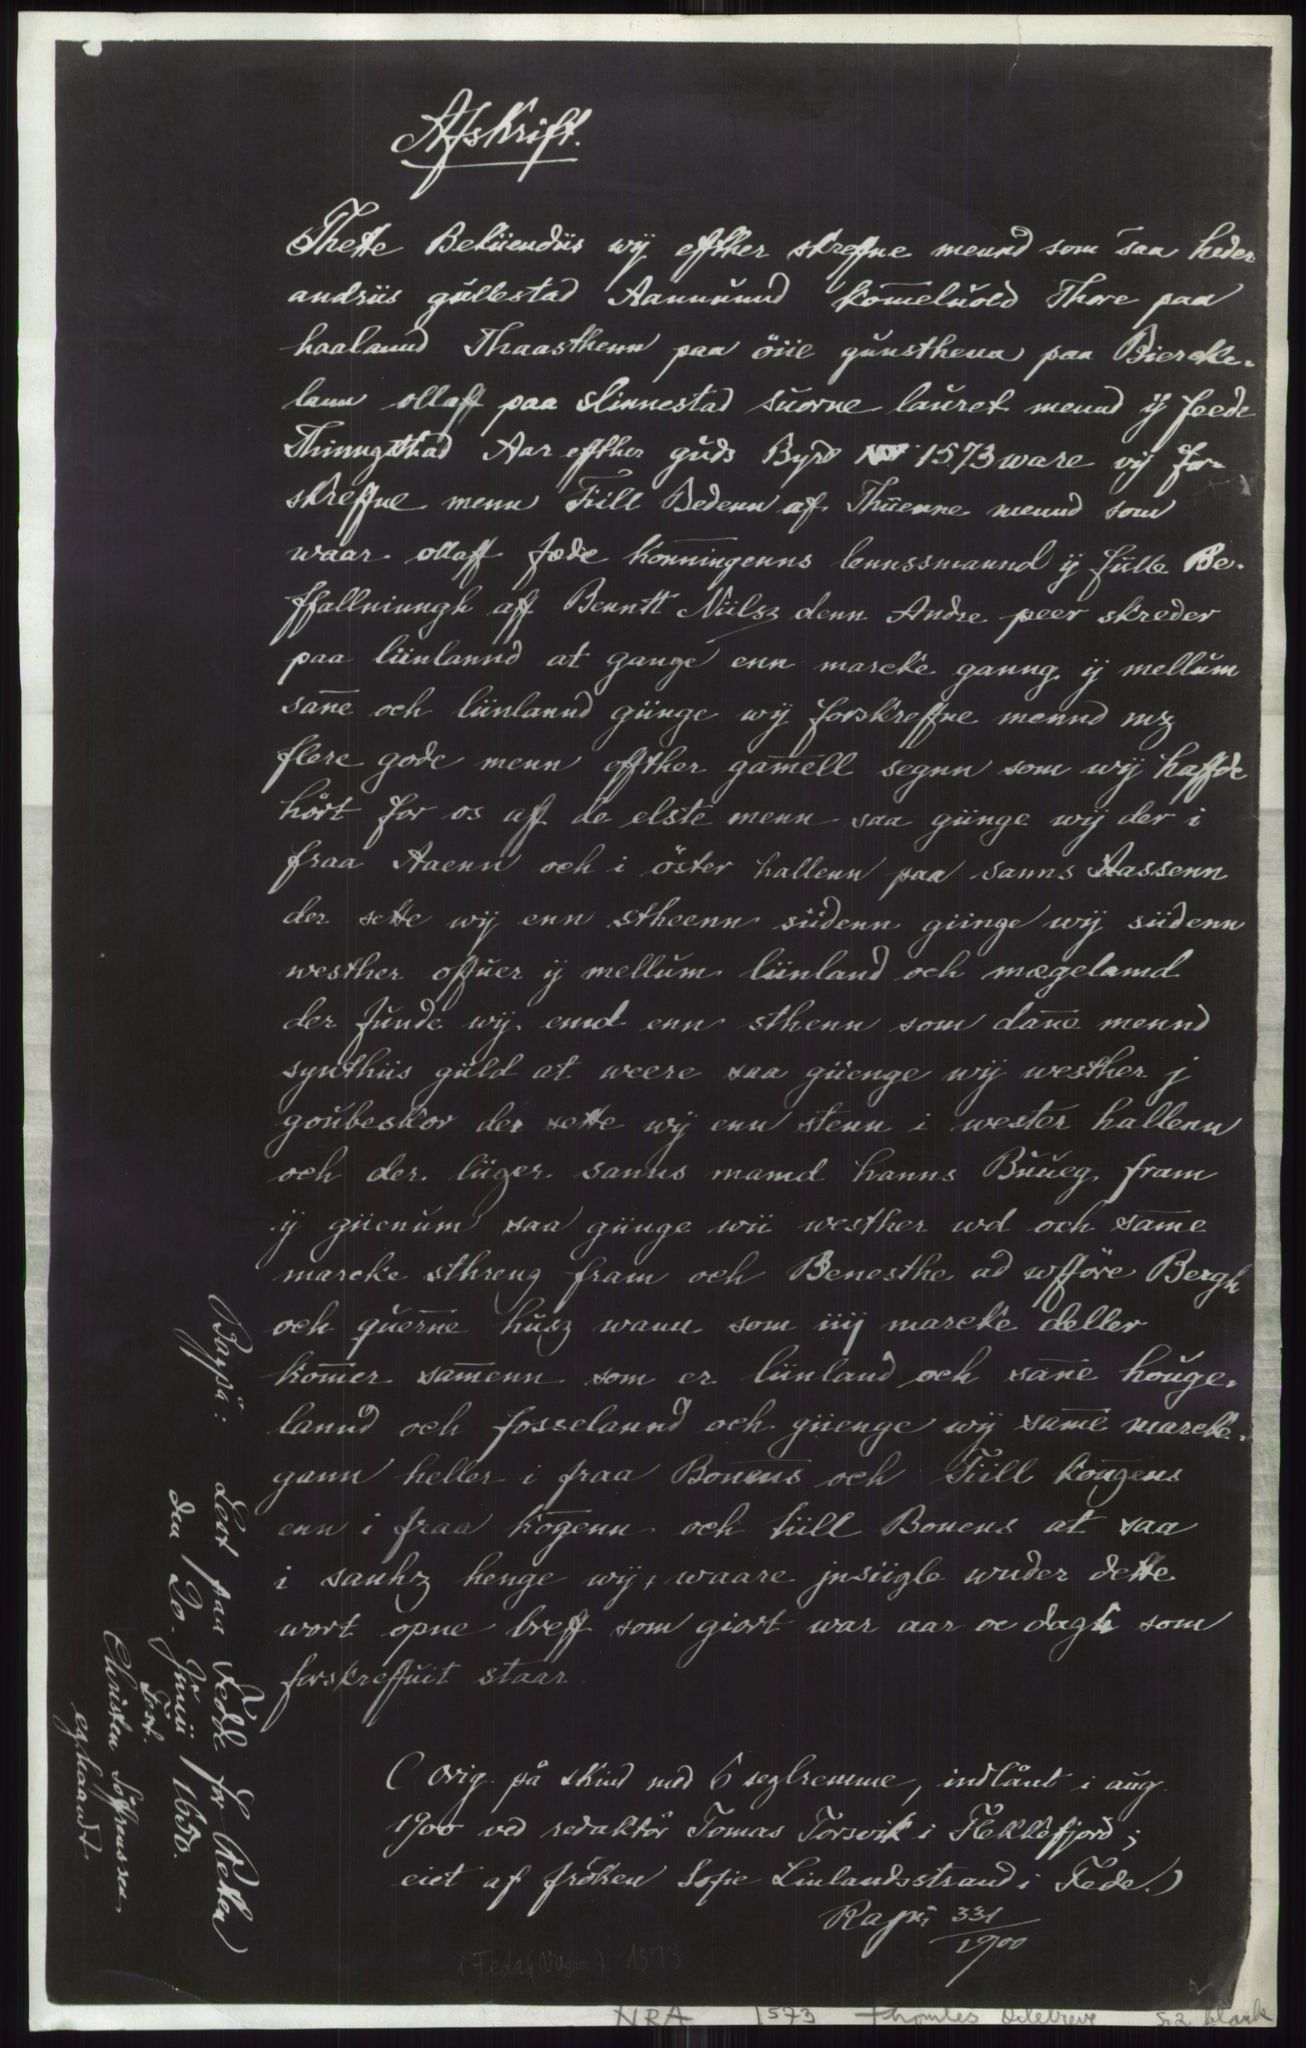 Afskrift.
Thette Bekiendiis wÿ effther skreffne mennd som saa heder
andriis gullestad Aannund komeluold Thore paa
haalannd Thaasthenn paa öiie gunsthenn paa Biercke-
lann ollaff paa slinnestad suorne lauret mennd ÿ feede
Thinngsthad Aar effther guds Byrd 1573 ware vÿ for-
skreffne menn Tiill Bedenn af Thuenne mennd som
waar ollaff fæde konningenns lennssmannd ÿ fulle Be-
ffallniungh aff Benntt Niilsz denn Andre peer skreder
paa liinlannd at gange enn marcke ganng ÿ mellum
sane och liinlannd giinge wÿ forskreffne mennd mz
flere gode menn effther gamell segnn som wÿ haffde
hört for os af de elste menn saa giinge wÿ der i
fraa Aaenn och i öster hallenn paa sanns Aassenn
der sette wÿ enn stheenn siidenn giinge wÿ siidenn
westher offuer ÿ mellum liinland och mægeland
der funde wÿ end enn sthenn som dane mennd
synthiis giild at weere saa giienge wÿ westher j
goubeskor der sette wÿ enn stenn i wester hallenn
och der liiger sanns mannd hanns Buueg fram
ÿ giienum saa giinge wii westher wd och same
marcke sthreng fram och Benesthe ad wfföre Bergh
och querne husz wann som iiij marcke deller
komer samenn som er liinland och sane houge-
lannd och fosselannd och giienge wÿ same marcke-
gann heller i fraa Bonens och Tiill kongens
enn i fraa kogenn och tiill Bonens at saa
i sanhz henge wÿ waare jnsiigle wnder dette
wort opne breff som giort war aar oc dagh som
forskreffuit staar.
(Orig. på skind med 6 seglremme, indlånt i aug.
1900 ved redaktör Tomas Torsvik i Flekkefjord;
eiet af fröken Sofie Linlandsstrand i Fede.)
Rapii 331/1900
Baypå: Lest paa Fedde for Retten
den 20. Junii 1650.
Test.
Christen Söffrenssen
eg. haandt.
i Feda (Vágsø) 1573
NRA 1573 Thomles Dilebreve S. 2 blank